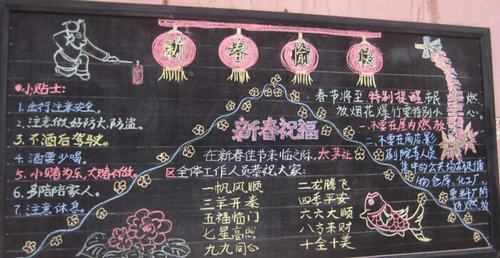 新春愉快
小贴士:
1、出行注意安全。
2、注意做好防火、防盗。
3、不酒后驾驶。
4、酒要少喝。
5、小赌为乐,大赌
6、多陪陪家人。
7、注意休息
新春祝福
在新春佳节来临之际,
区全体工作人员恭祝大家:
一帆风顺 二龙腾飞
三羊开泰 四季平安
五福临门 六六大顺
七星高照 八方来财
九九同心 十全十美
春节将至 特别提醒 燃
放烟花爆竹要特别小心。
一、不要在屋内燃放
二、不要在商店、影
剧院等人员
集中的公共场
仓库、化工厂、
燃放